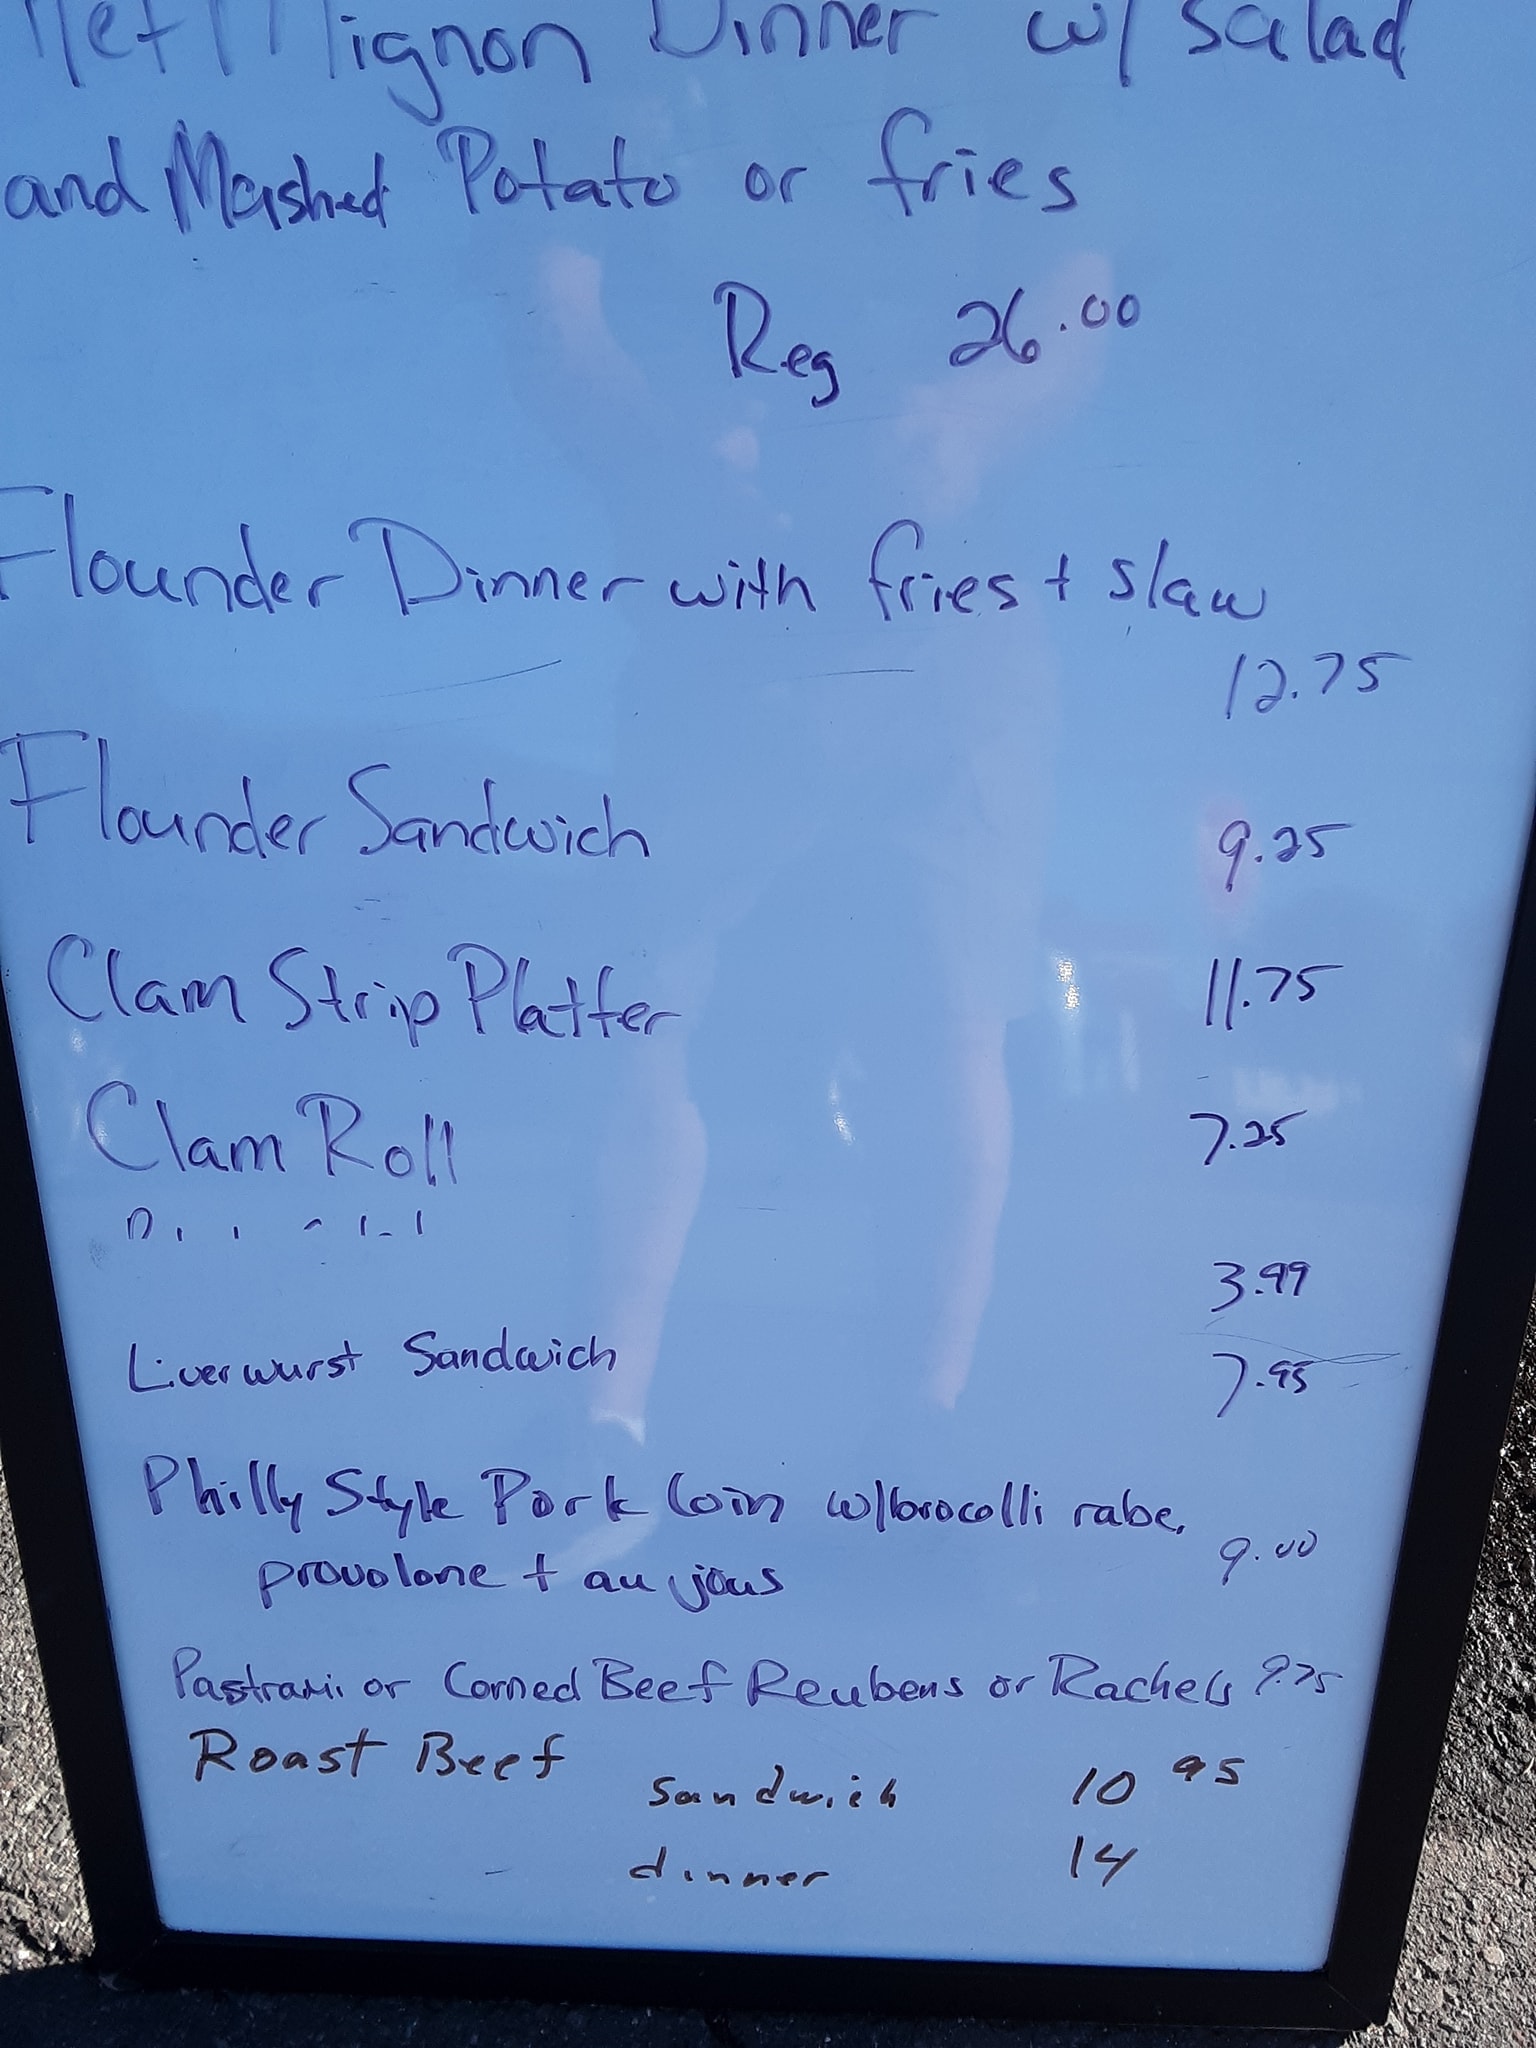 Mignon Dinner w/ Salad
and Mashed Potato or fries
Reg 26.00
Flounder Dinner with fries + slaw
12.75
Flounder Sandwich 9.25
Clam Strip Platter 11.75
Clam Roll 7.25
3.99
Liverwurst Sandwich 7.95
Philly Style Pork Loin w/brocolli rabe,
provolone + au jous 9.00
Pastrami or Corned Beef Reubens or Rachels 9.75
Roast Beef
Sandwich 10 95
dinner 14